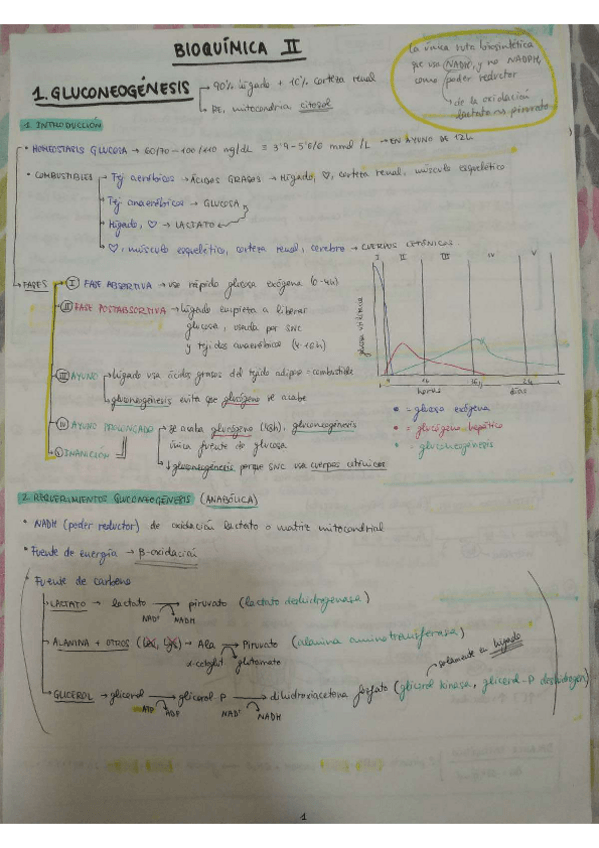 BIOQUÍMICA II
La única ruta biosintética
que usa NADH, y no NADPH,
como poder reductor
de la oxidación
lactato → piruvato
1. GLUCONEOGÉNESIS → 90% hígado + 10% corteza renal
→ RE, mitocondria, citosol
1. INTRODUCCIÓN
• HOMEOSTASIS GLUCOSA → 60/70 - 100/110 mg/dL ≡ 3'9 - 5'6/6 mmol/L → EN AYUNO DE 12h
• COMBUSTIBLES → Tej aeróbicos → ÁCIDOS GRASOS → Hígado, ♡, corteza renal, músculo esquelético
→ Tej anaeróbicos → GLUCOSA
→ Hígado, ♡ → LACTATO
→ ♡, músculo esquelético, corteza renal, cerebro → CUERPOS CETÓNICOS.
→ FASES → I FASE ABSORTIVA → uso rápido glucosa exógena (0-4h)
II FASE POSTABSORTIVA → Hígado empieza a liberar
glucosa, usada por SNC
y tejidos anaeróbicos (4-16h)
III AYUNO → Hígado usa ácidos grasos del tejido adiposo = combustible
→ gluconeogénesis evita que glucógeno se acabe
IV AYUNO PROLONGADO → se acaba glucógeno (48h), gluconeogénesis
única fuente de glucosa
V INANICIÓN → ↓ gluconeogénesis porque SNC usa cuerpos cetónicos
I II III IV V
horas días
• = glucosa exógena
• = glucógeno hepático
• = gluconeogénesis
2. REQUERIMIENTOS GLUCONEOGÉNESIS (ANABÓLICA)
• NADH (poder reductor) de oxidación lactato o matriz mitocondrial
• Fuente de energía → β-oxidación
• Fuente de carbono
→ LACTATO → lactato → piruvato (lactato deshidrogenasa)
NAD⁺ NADH
→ ALANINA + OTROS → Ala → Piruvato (alanina aminotransferasa)
glutamato
solamente en hígado
→ GLICEROL → glicerol → glicerol-P → dihidroxiacetona fosfato (glicerol kinasa, glicerol-P deshidrogen)
ATP ADP NAD⁺ NADH
1